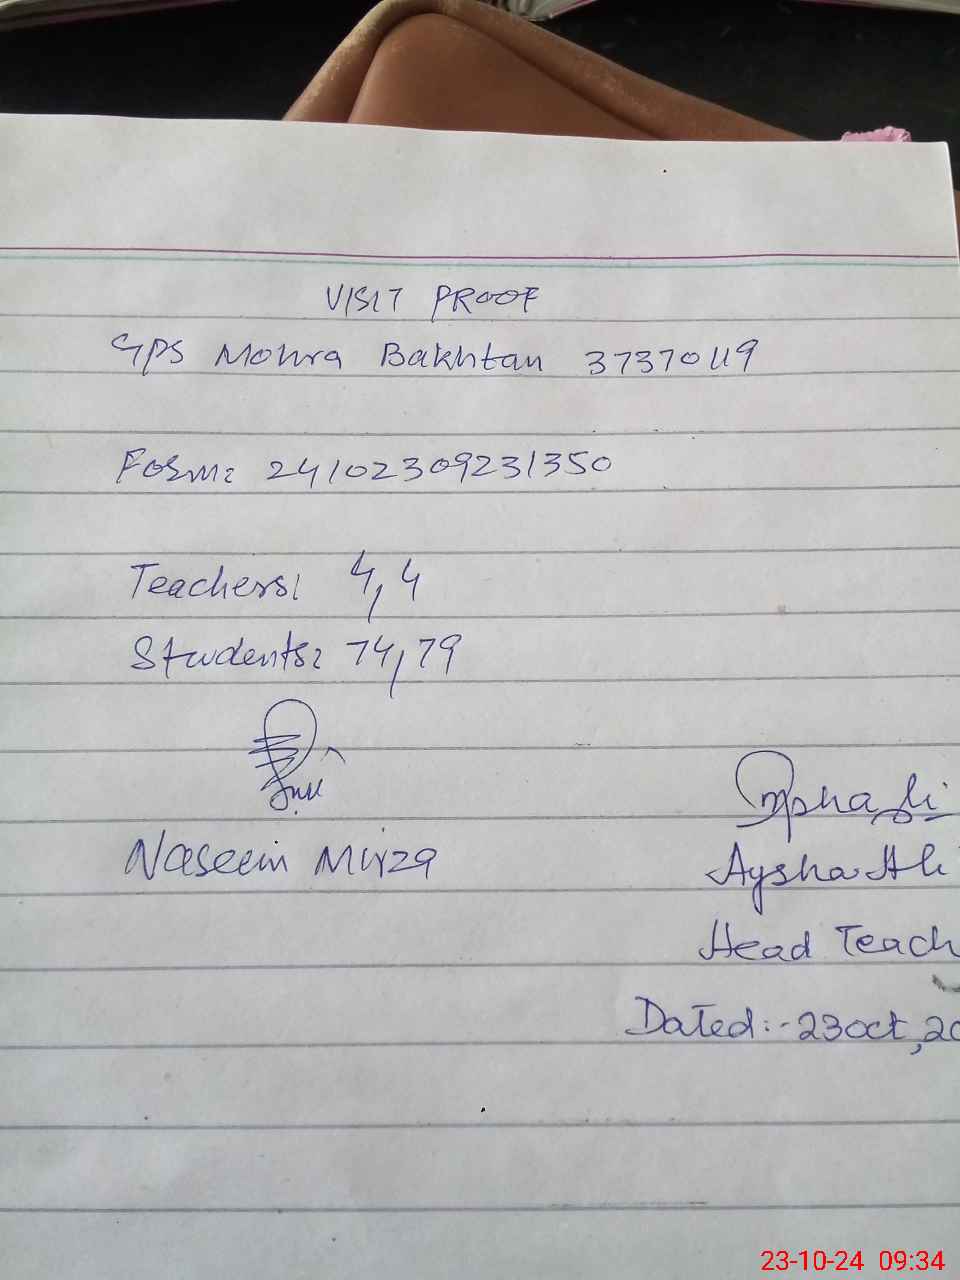 VISIT PROOF
GPS Mohra Bakhtan 37370119
Form: 24102309231350
Teachers: 4, 4
Students: 74, 79
Naseem Mirza
Aysha Ali
Head Teach
Dated:- 23 oct, 20
23-10-24 09:34